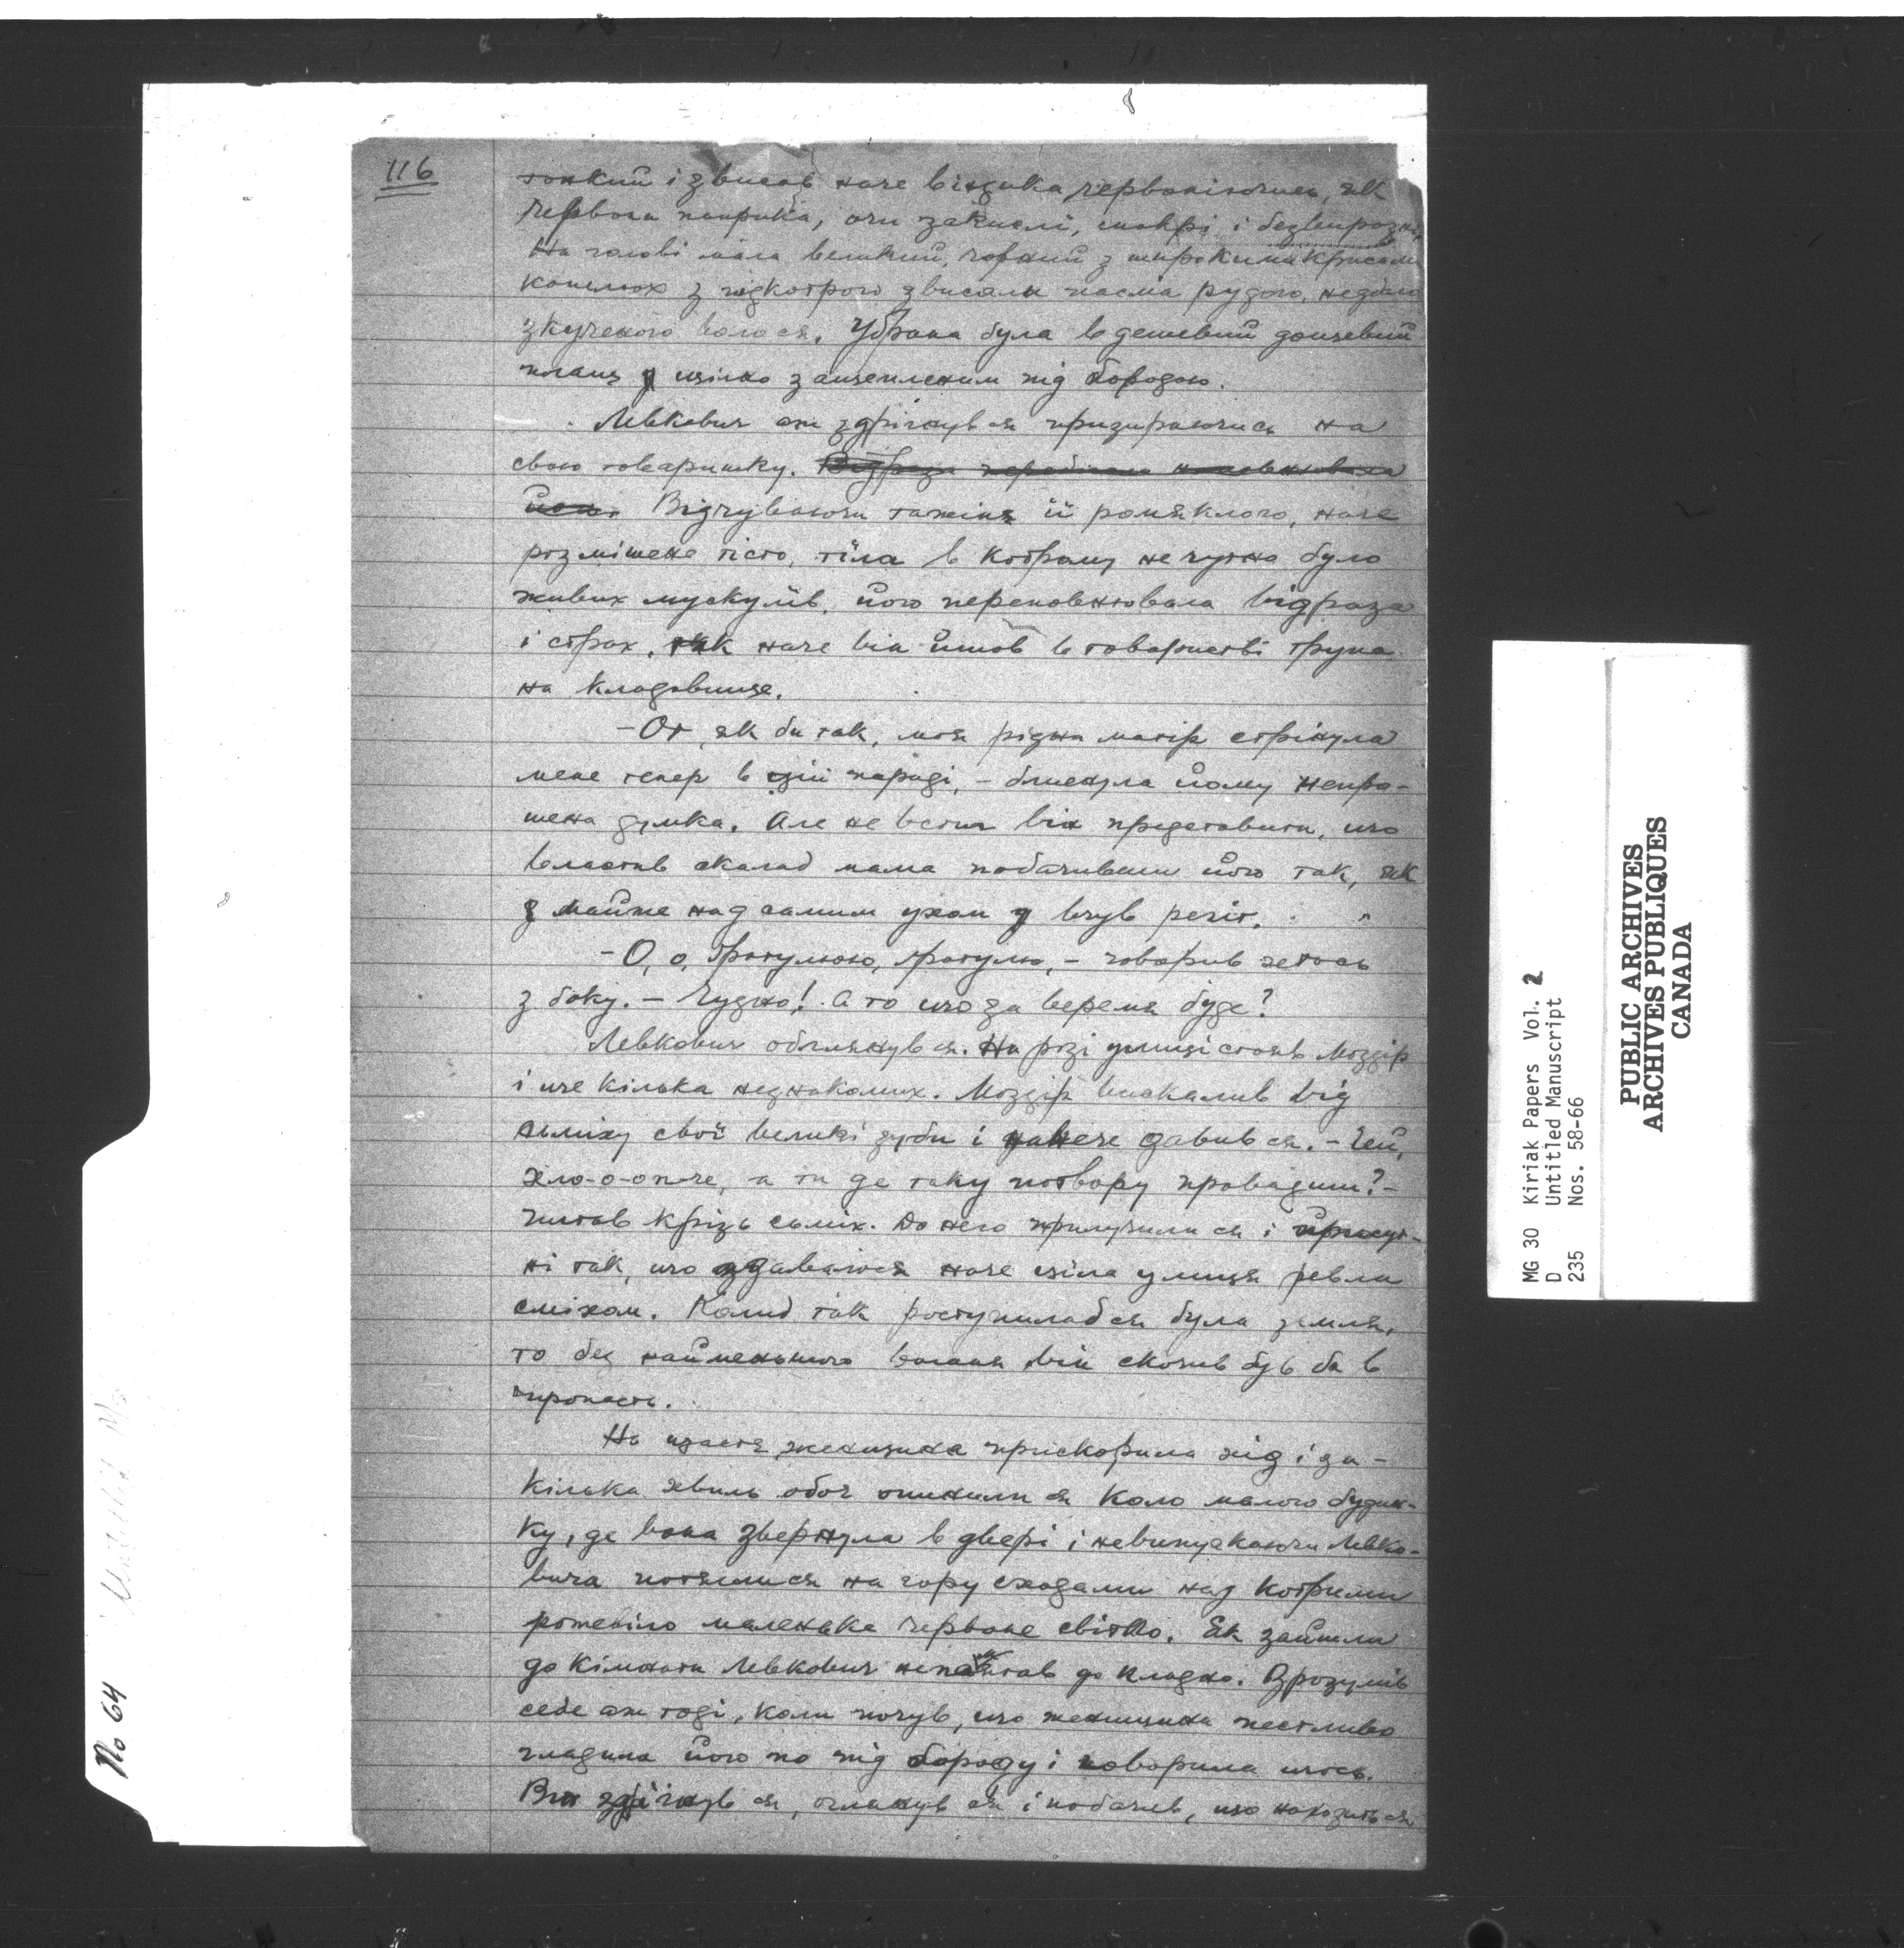 116
тонкий і звисав наче індика червоніючись, як
червона паприка, очи закислі, мокрі і безвиразні.
На голові мала великий, чорний з широкими крисами
капелюх з підкотрого звисали пасма рудого, недбало
зкученого волося. Убрана була в дешевий дощевий
плащ щільно защепленим під бородою.
Левкович аж здрігнувся призираючись на
свою товаришку.
Відчуваючи тажіня її ромяклого, наче
розмішене тісто, тіла в котрому не чутно було
живих мускулів, його переповнювала відраза
і страх, так наче він йшов в товаристві трупа
на кладовище.
— От, як би так, моя рідна матір стрінула
мене тепер в цій параді, — блиснула йому непро-
шена думка. Але не встиг він представити, що
властив сказала б мама побачивши його так, як
майже над самим ухом вчув регіт.
— О, о, ґратулюю, ґратулю, — говорив хетось
з боку. — Чудно! А то що за веремя буде?
Левкович обглянувся. На розі улиці стояв Моздір
і ще кілька незнакомих. Моздір вискалив від
сьміху свої великі зуби і наче давився. — Гей,
хло-о-опче, а ти де таку потвору провадиш? —
питав крізь сьміх. До него прилучилися і присут-
ні так, що здавалося наче ціла улиця ревла
сміхом. Колиб так роступиласься була земля,
то без найменьшого вагання він скочив був би в
пропасть.
На щастя женщина прискорила хід і за —
кілька хвиль обоє опинилися коло малого будин-
ку, де вона звернула в двері і невипускаючи Левко-
вича потяглися на гору сходами над котрими
рожевіло маленьке червоне світло. Як зайшли
до кімнати Левкович непамятав до кладно. Зрозумів
себе аж тоді, коли почув, що женщина пестливо
гладила його по під бороду і говорила щось.
Він здрігнувся, оглянувся і побачив, що находиться
No 64
Untitled M/s
MG 30 Kiriak Papers Vol. 2
D Untitled Manuscript
235 Nos. 58-66
PUBLIC ARCHIVES
ARCHIVES PUBLIQUES
CANADA